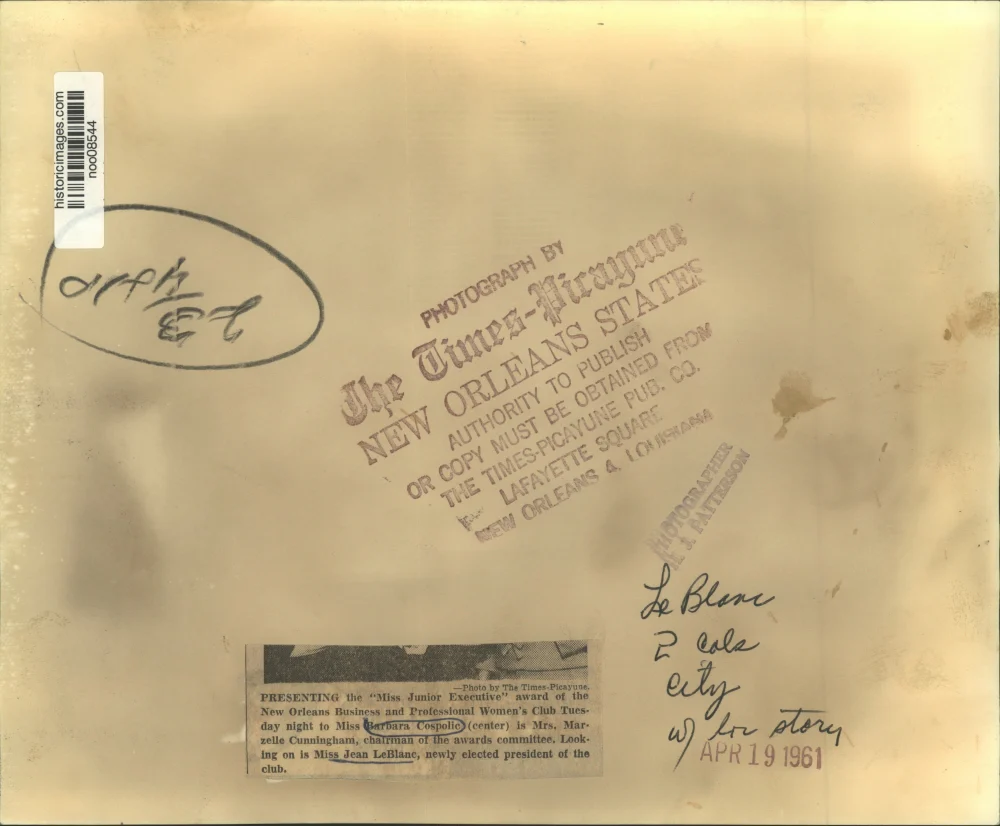 historicimages.com
noo08544
PHOTOGRAPH BY
The Times-Picayune
NEW ORLEANS STATES
AUTHORITY TO PUBLISH
OR COPY MUST BE OBTAINED FROM
THE TIMES-PICAYUNE PUB. CO.
LAFAYETTE SQUARE
NEW ORLEANS 4, LOUISIANA
PHOTOGRAPHER
J. PATTERSON
Le Blanc
2 cols
city
w/ lor story
APR 19 1961
—Photo by The Times-Picayune.
PRESENTING the "Miss Junior Executive" award of the
New Orleans Business and Professional Women's Club Tues-
day night to Miss Barbara Cospolic (center) is Mrs. Mar-
zelle Cunningham, chairman of the awards committee. Look-
ing on is Miss Jean LeBlanc, newly elected president of the
club.